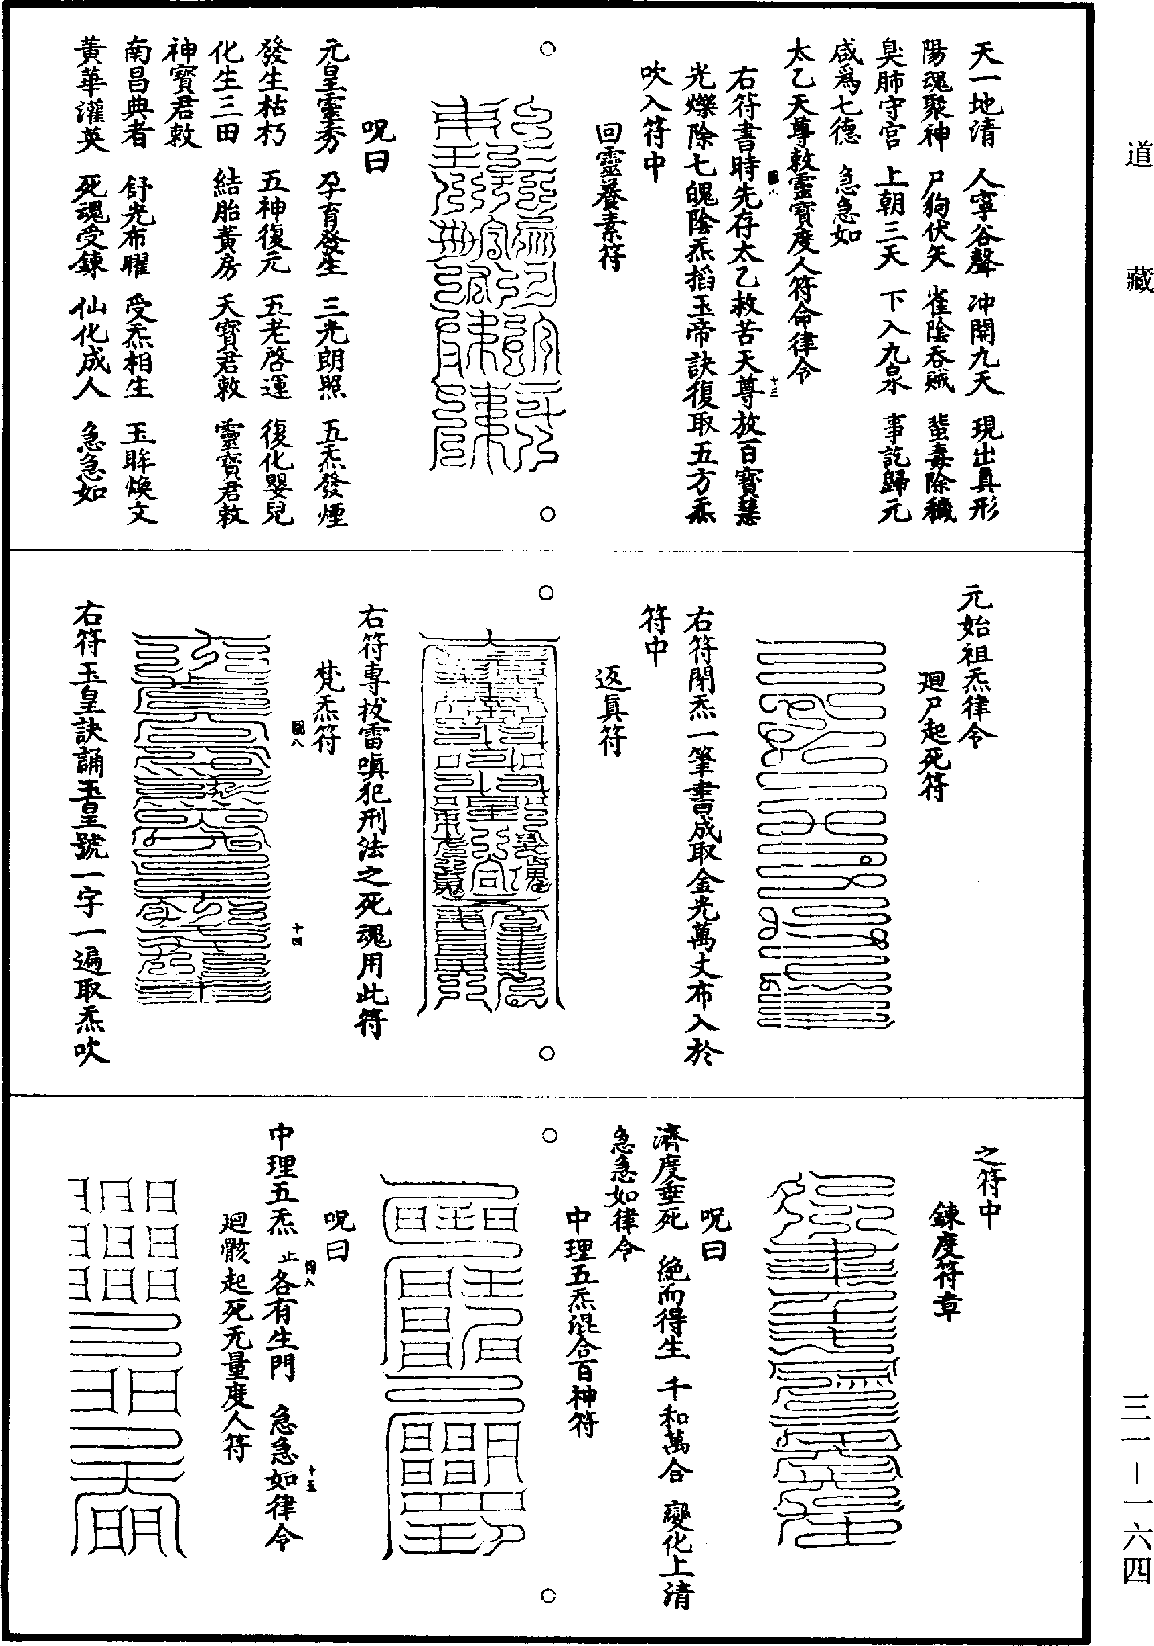 天一地清 人寧谷聲 冲開九天 現出真形
陽魂聚神 尸狗伏矢 雀陰吞賊 蜚毒除穢
臭肺守宫 上朝三天 下入九泉 事訖歸元
咸爲七德 急急如
太乙天尊敕靈寶度人符命律令
右符書時先存太乙救苦天尊放百寶慧
光爍除七魄陰炁搯玉帝訣復取五方炁
吹入符中
回靈養素符
呪曰
元皇靈秀 孕育發生 三光朗照 五炁發煙
發生枯朽 五神復元 五老啓運 復化嬰兒
化生三田 結胎黃房 天寶君敕 靈寶君敕
神寶君敕
南昌典者 舒光布曜 受炁相生 玉眸煥文
黃華灌英 死魂受鍊 仙化成人 急急如
元始祖炁律令
廻尸起死符
右符閉炁一筆書成取金光萬丈布入於
符中
返真符
右符專拔雷嗔犯刑法之死魂用此符
梵炁符
右符玉皇訣誦玉皇號一字一遍取炁吹
之符中
鍊度符章
呪曰
濟度垂死 絕而得生 千和萬合 變化上清
急急如律令
中理五炁混合百神符
呪曰
中理五炁 止 各有生門 急急如律令
廻骸起死无量度人符
道藏
三一—一六四